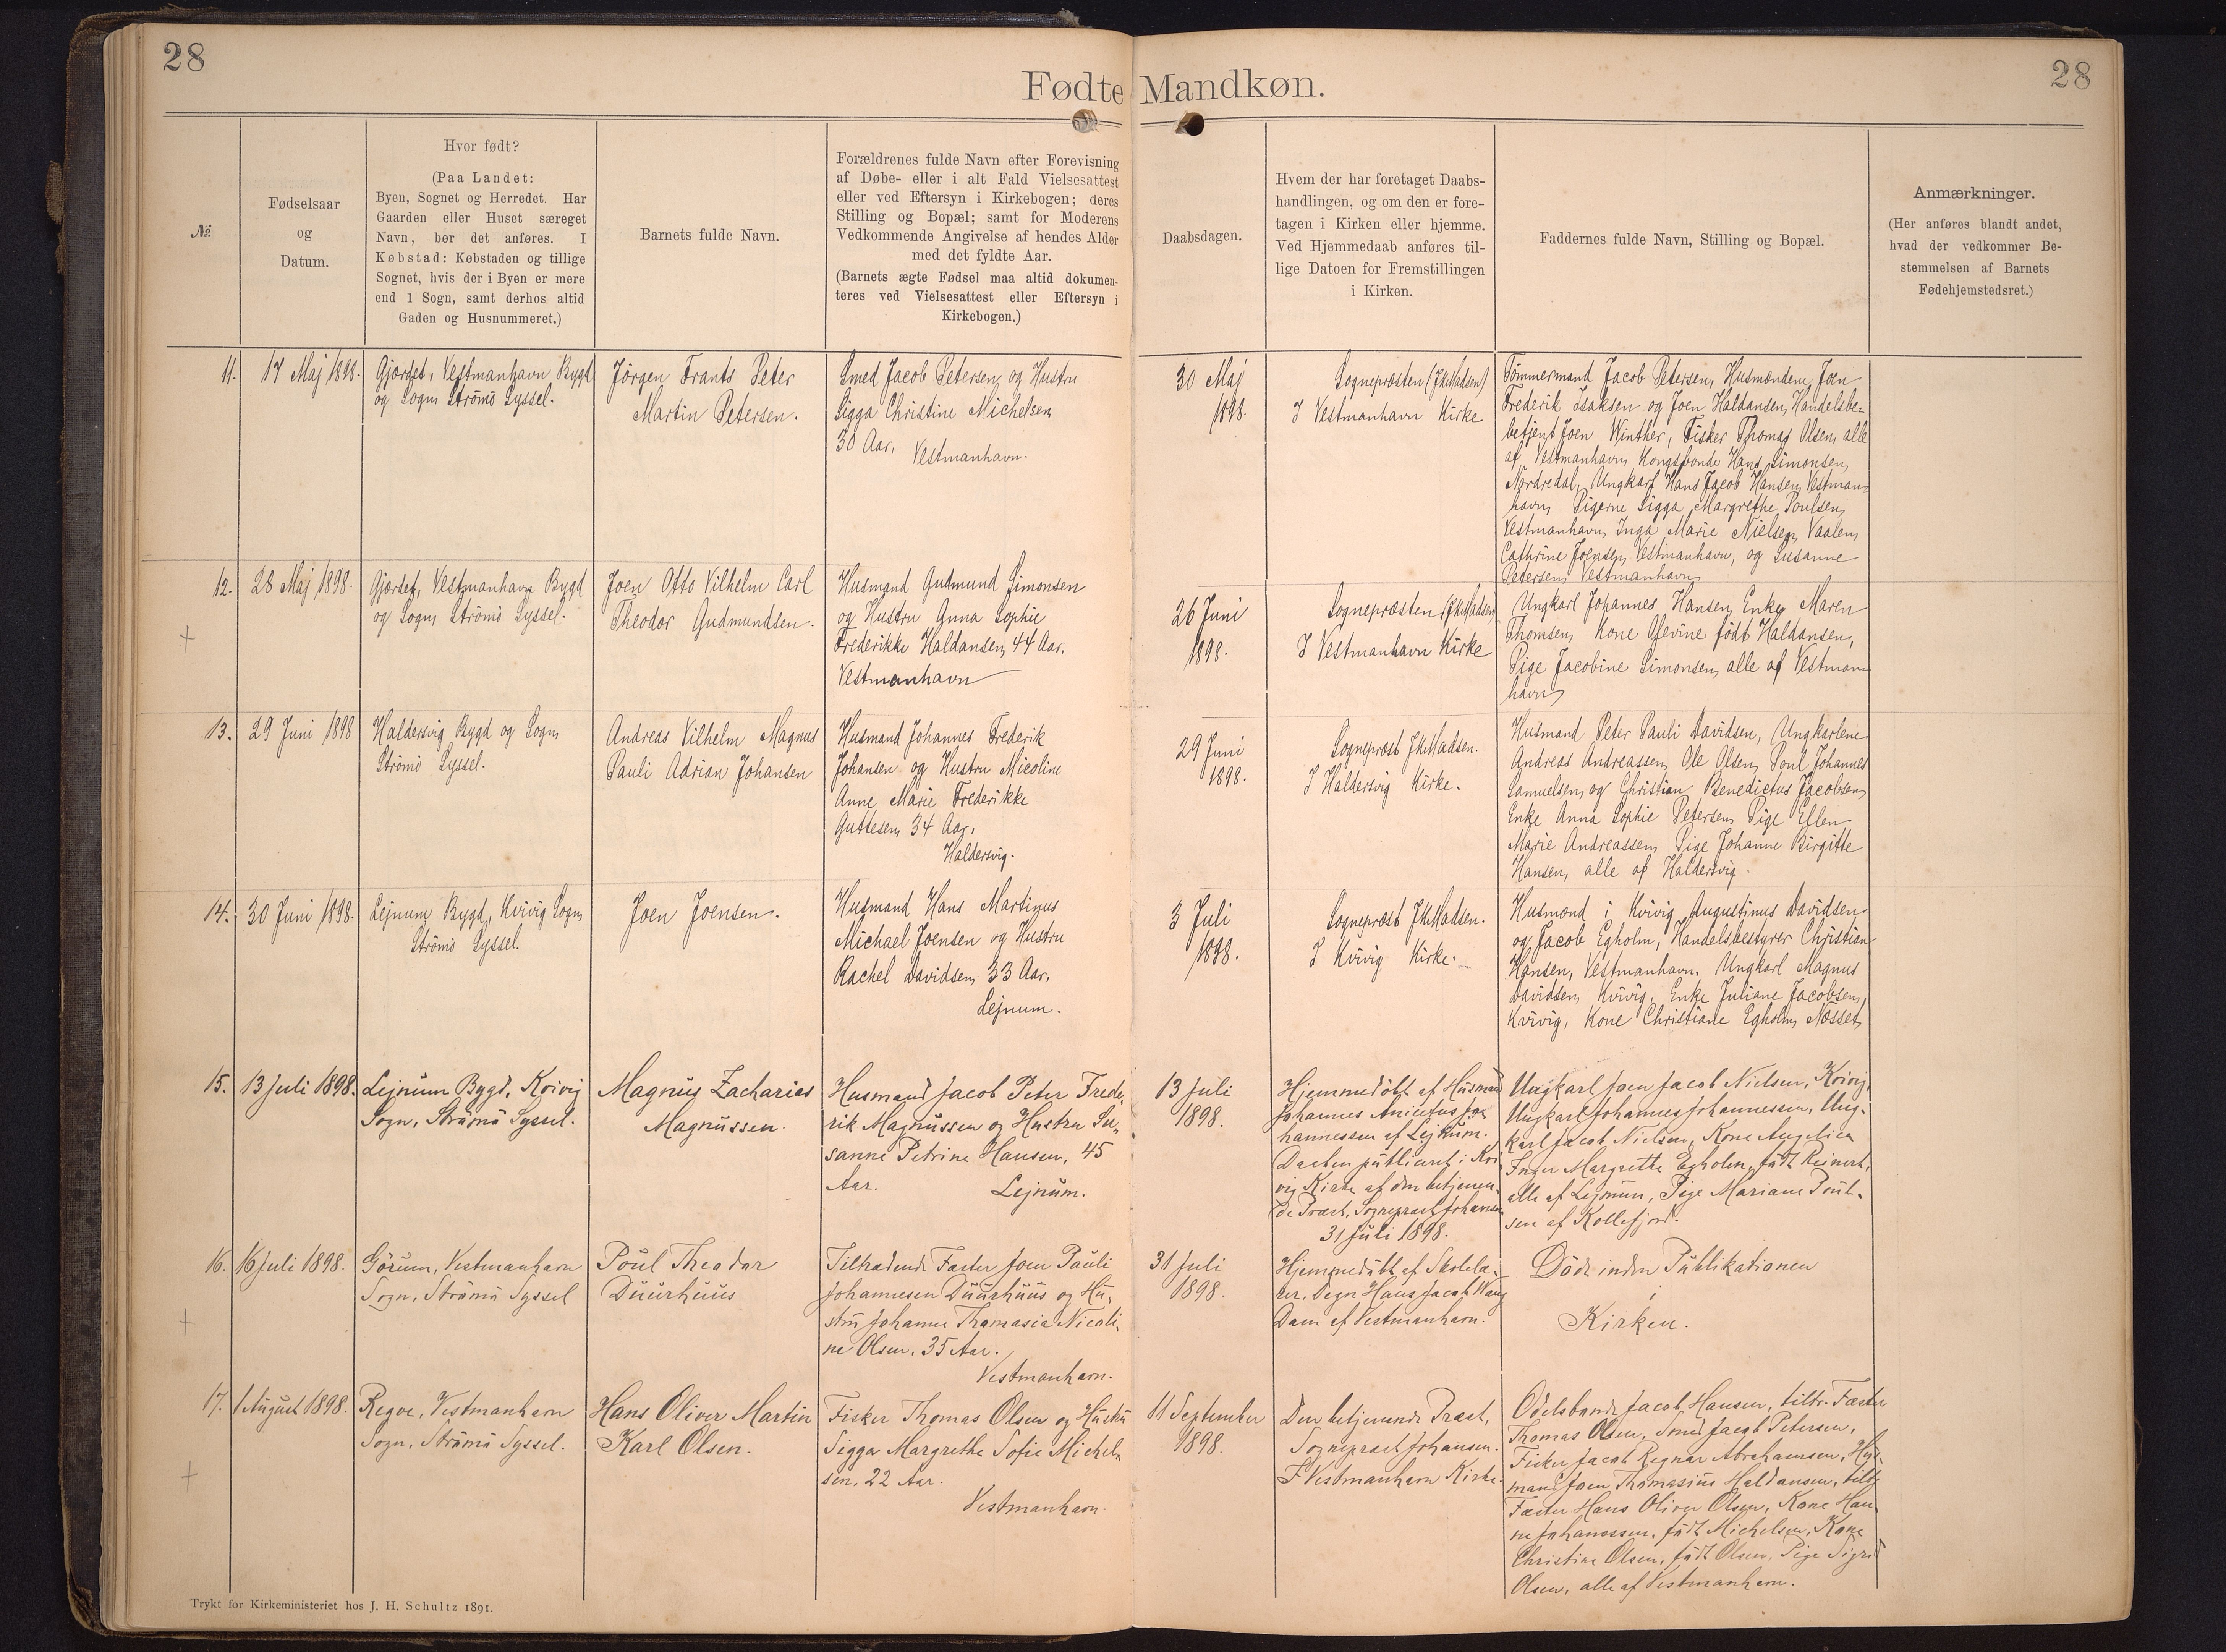 28
28
Fødte Mandkøn.
№
Fødselsaar
og
Datum.
Hvor født?
(Paa Landet:
Byen, Sognet og Herredet. Har
Gaarden eller Huset særeget
Navn, bør det anføres. I
Købstad: Købstaden og tillige
Sognet, hvis der i Byen er mere
end 1 Sogn, samt derhos altid
Gaden og Husnummeret.)
Barnets fulde Navn.
Forældrenes fulde Navn efter Forevisning
af Døbe- eller i alt Fald Vielsesattest
eller ved Eftersyn i Kirkebogen; deres
Stilling og Bopæl; samt for Moderens
Vedkommende Angivelse af hendes Alder
med det fyldte Aar.
(Barnets ægte Fødsel maa altid dokumen-
teres ved Vielsesattest eller Eftersyn i
Kirkebogen.)
Daabsdagen.
Hvem der har foretaget Daabs-
handlingen, og om den er fore-
tagen i Kirken eller hjemme.
Ved Hjemmedaab anføres til-
lige Datoen for Fremstillingen
i Kirken.
Faddernes fulde Navn, Stilling og Bopæl.
Anmærkninger.
(Her anføres blandt andet,
hvad der vedkommer Be-
stemmelsen af Barnets
Fødehjemstedsret.)
11.
17 Maj 1898.
Gjordet, Vestmanhavn Bygd
og Sogn Strömö Syssel.
Jörgen Frants Peter
Martin Petersen.
Smed Jacob Petersen og Hustru
Sigga Christine Michelsen
30 Aar, Vestmanhavn.
30 Maj
1898.
Sognepræsten (J K Madsen)
I Vestmanhavn Kirke
Tömmermand Jacob Petersen, Husmændene Joen
Frederik Isaksen og Joen Haldansen, Handelsbe-
betjent Joen Winther, Fisker Thomas Olsen, alle
af Vestmanhavn, Kongsbonde Hans Simonsen,
Nordredal, Ungkarl Hans Jacob Hansen, Vestman-
havn, Pigerne Sigga Margrethe Poulsen,
Vestmanhavn, Inga Marie Nielsen, Vaalen,
Cathrine Joensen, Vestmanhavn, og Susanne
Petersen Vestmanhavn
12.
28 Maj 1898.
Gjordet, Vestmanhavn Bygd
og Sogn, Strömö Syssel.
Joen Otto Vilhelm Carl
Theodor Gudmundsen.
Husmand Gudmund Simonsen
og Hustru Anna Sophie
Frederikke Haldansen, 44 Aar.
Vestmanhavn
26 Juni
1898.
Sognepræsten (J K Madsen)
I Vestmanhavn Kirke
Ungkarl Johannes Hansen, Enke Maren
Thomsen, Kone Olevine födt Haldansen,
Pige Jacobine Simonsen, alle af Vestman
havn
13.
29 Juni 1898
Haldersvig Bygd og Sogn
Strömö Syssel.
Andreas Vilhelm Magnus
Pauli Adrian Johansen
Husmand Johannes Frederik
Johansen og Hustru Micoline
Anne Marie Frederikke
Guttesen, 34 Aar,
Haldersvig.
29 Juni
1898.
Sognepræst J K Madsen.
I Haldersvig Kirke.
Husmand Peter Pauli Davidsen, Ungkarlene
Andreas Andreassen, Ole Olsen, Poul Johannes
Samuelsen, og Christian Benedictus Jacobsen,
Enke Anna Sophie Petersen, Pige Ellen
Marie Andreassen, Pige Johanne Birgitte
Hansen, alle af Haldersvig.
14.
30 Juni 1898.
Lejnum Bygd, Kvivig Sogn,
Strömö Syssel.
Joen Joensen.
Husmand Hans Martinus
Michael Joensen og Hustru
Rachel Davidsen, 33 Aar,
Lejnum.
3 Juli
1898.
Sognepræst J K Madsen.
I Kvivig Kirke.
Husmænd i Kvivig Augustinus Davidsen
og Jacob Egholm, Handelsbestyrer Christian
Hansen, Vestmanhavn, Ungkarl Magnus
Davidsen, Kvivig, Enke Juliane Jacobsen,
Kvivig, Kone Christiane Egholm, Næsset
15.
13 Juli 1898.
Lejnum Bygd, Kvivig
Sogn, Strömö Syssel.
Magnus Zacharias
Magnussen.
Husmand Jacob Peter Frede-
rik Magnussen og Hustru Su-
sanne Petrine Hansen, 45
Aar. Lejnum.
13 Juli
1898.
Hjemmedöbt af Husmand
Johannes Anicetus Jo-
hannessen af Lejnum.
Daaben publiceret i Kvi
vig Kirke af den betjenen-
de Præst, Sognepræst Johansen
31 Juli 1898.
Ungkarl Joen Jacob Nielsen, Kvivig,
Ungkarl Johannes Johannessen, Ung-
karl Jacob Nielsen, Kone Angelica
Inger Margrethe Egholm, födt Reinert,
alle af Lejnum, Pige Mariane Poul-
sen af Kollefjord.
16.
16 Juli 1898.
Görum, Vestmanhavn
Sogn, Strömö Syssel
Poul Theodor
Duurhuus
Tiltrædende Fæster Joen Pauli
Johannesen Duurhuus og Hu-
stru Johanne Thomasia Nicoli-
ne Olsen, 35 Aar.
Vestmanhavn.
31 Juli
1898.
Hjemmedöbt af Skolelæ-
rer, Degn Hans Jacob
Dam af Vestmanhavn.
Döde inden Publikationen
i
Kirken.
17.
1 August 1898.
Regve, Vestmanhavn
Sogn, Strömö Syssel.
Hans Oliver Martin
Karl Olsen.
Fisker Thomas Olsen og Hustru
Sigga Margrethe Sofie Michel-
sen, 22 Aar.
Vestmanhavn.
11 September
1898.
Den betjenende Præst,
Sognepræst Johansen.
I Vestmanhavn Kirke.
Odelsbonde Jacob Hansen, tiltr. Fæster
Thomas Olsen, Smed Jacob Petersen,
Fisker Jacob Regnar Abrahamsen, Hus-
mand Joen Thomasius Haldansen, tiltr
Fæster Hans Oliver Olsen, Kone Han
ne Johannesen, födt Michelsen, Kone
Christine Olsen, födt Olsen, Pige Sigrid
Olsen, alle af Vestmanhavn.
Trykt for Kirkeministeriet hos J. H. Schultz 1891.